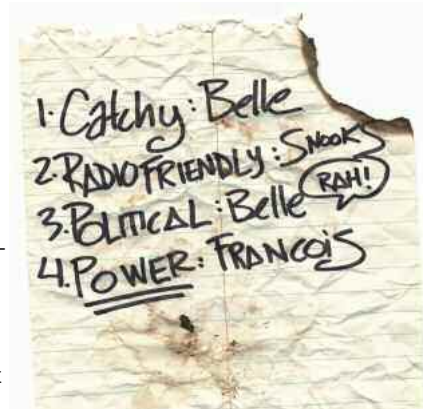 1. Catchy: Belle
2. RADIO FRIENDLY: SNOOKS
3. POLITICAL: Belle RAH!
4. POWER: FRANCOIS